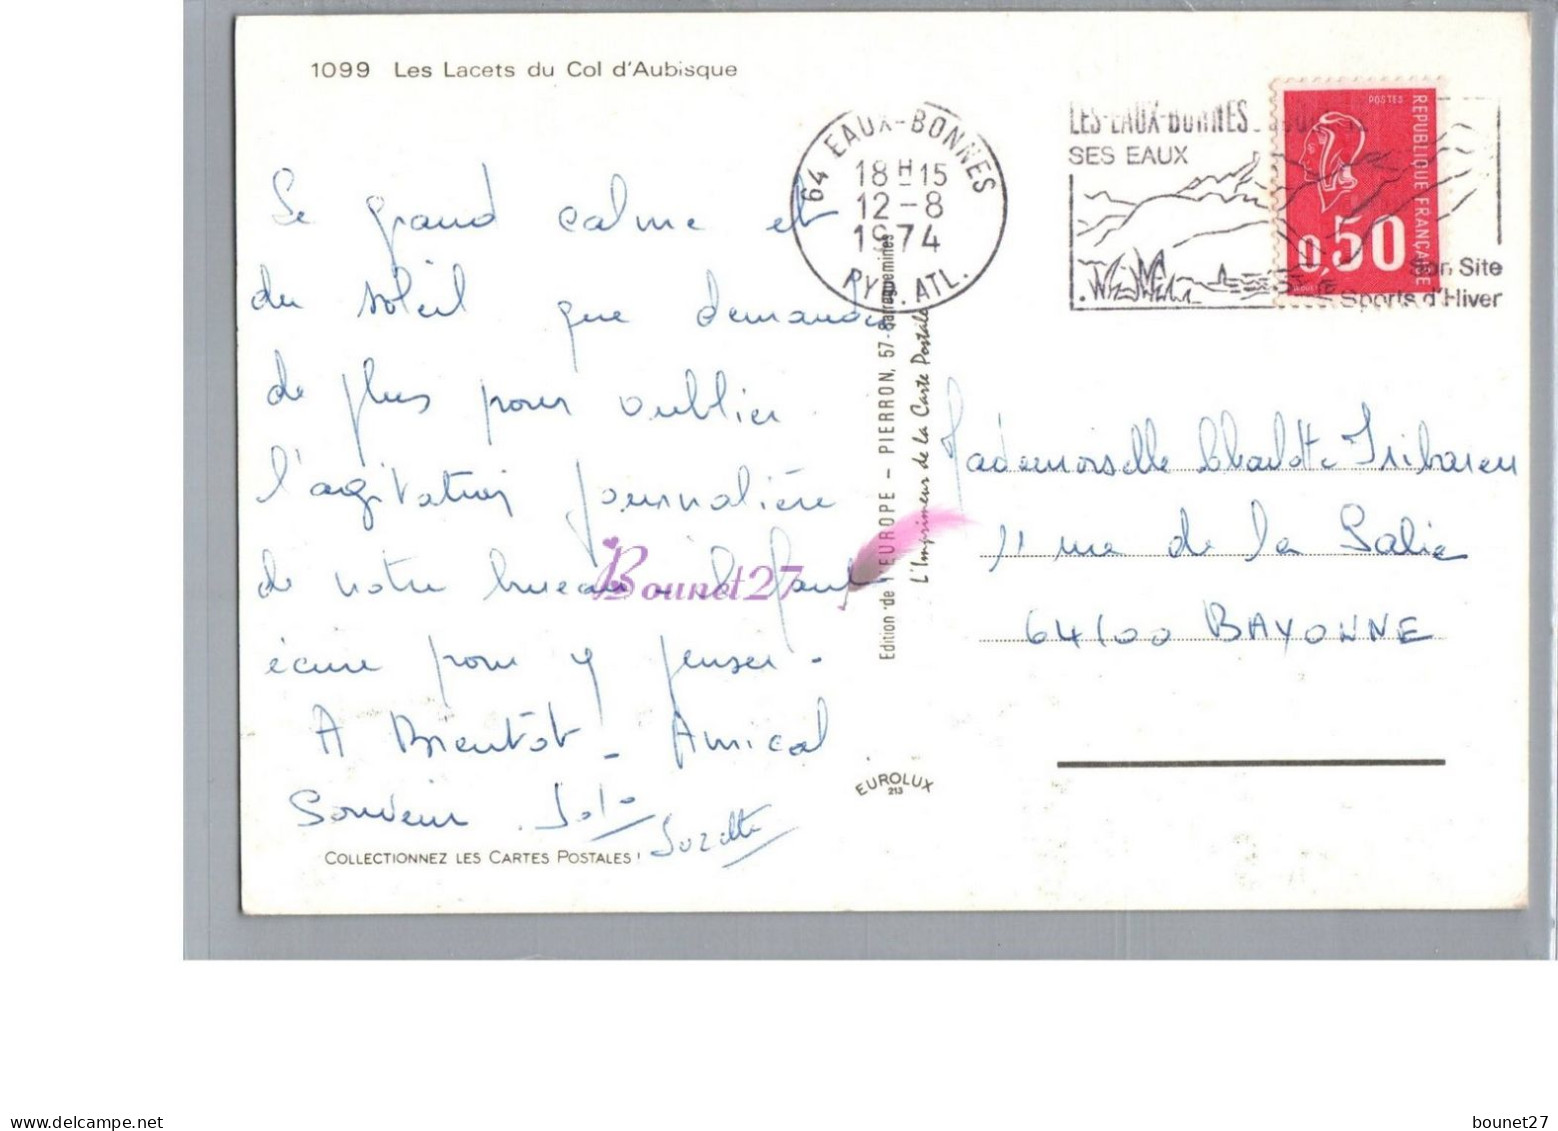 1099 Les Lacets du Col d'Aubisque
Le grand calme et
du soleil que demander
de plus pour oublier
l'agitation journalière
de notre bureau - il faut
écrire pour y penser -
A Bientôt - Amical
Souvenir
Suzette
COLLECTIONNEZ LES CARTES POSTALES !
64 EAUX-BONNES
18 H 15
12-8
1974
PYR. ATL.
LES-EAUX-BONNES
SES EAUX
Son Site
Sports d'Hiver
POSTES
REPUBLIQUE FRANÇAISE
0,50
Edition de l'EUROPE - PIERRON, 57-Sarreguemines
L'Imprimeur de la Carte Postale
Mademoiselle Charlotte Iribaren
11 rue de la Salie
64100 BAYONNE
EUROLUX
213
Bounet27
delcampe.net
bounet27